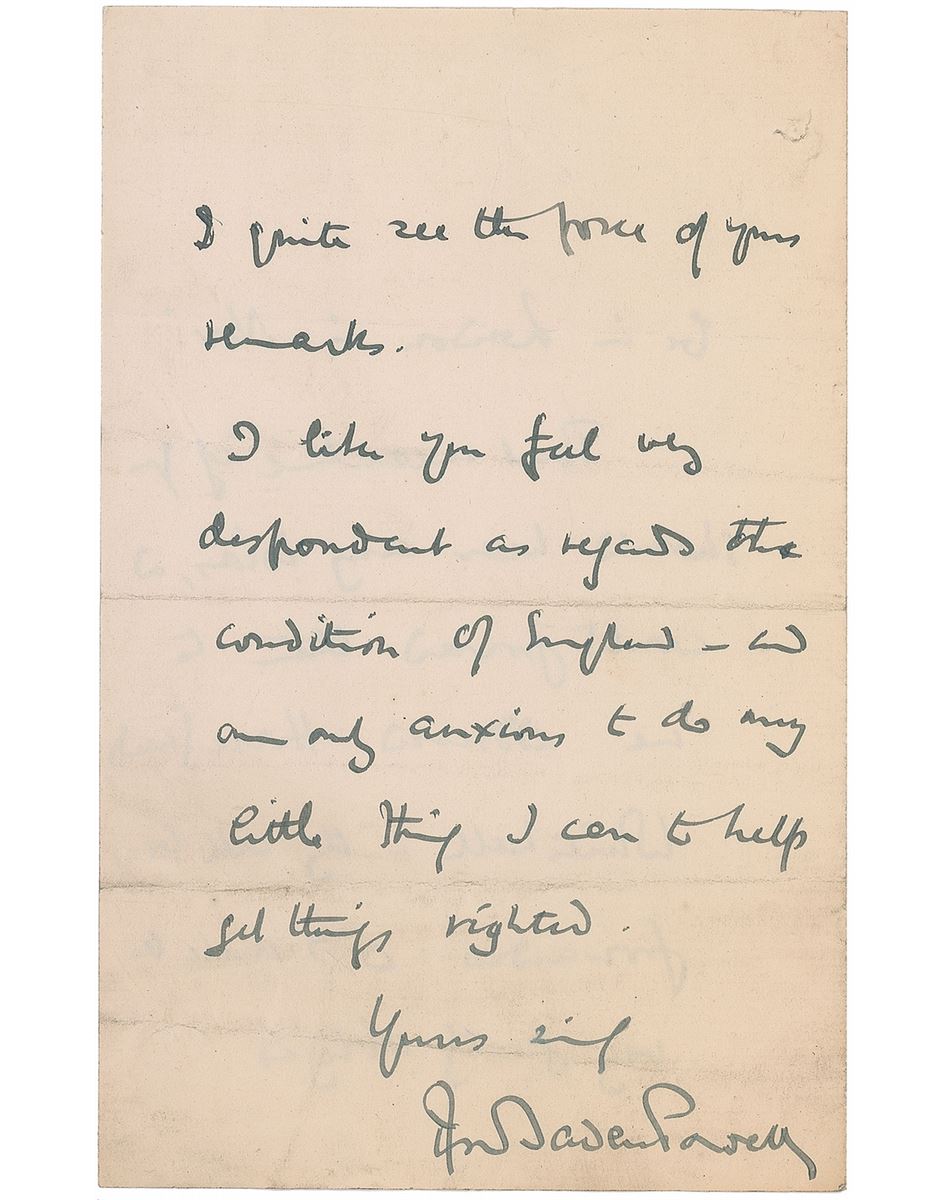 I quite see the force of your
remarks.
I like you feel very
despondent as regards the
condition of England – and
am only anxious to do any
little thing I can to help
get things righted.
Yours
Baden Powell